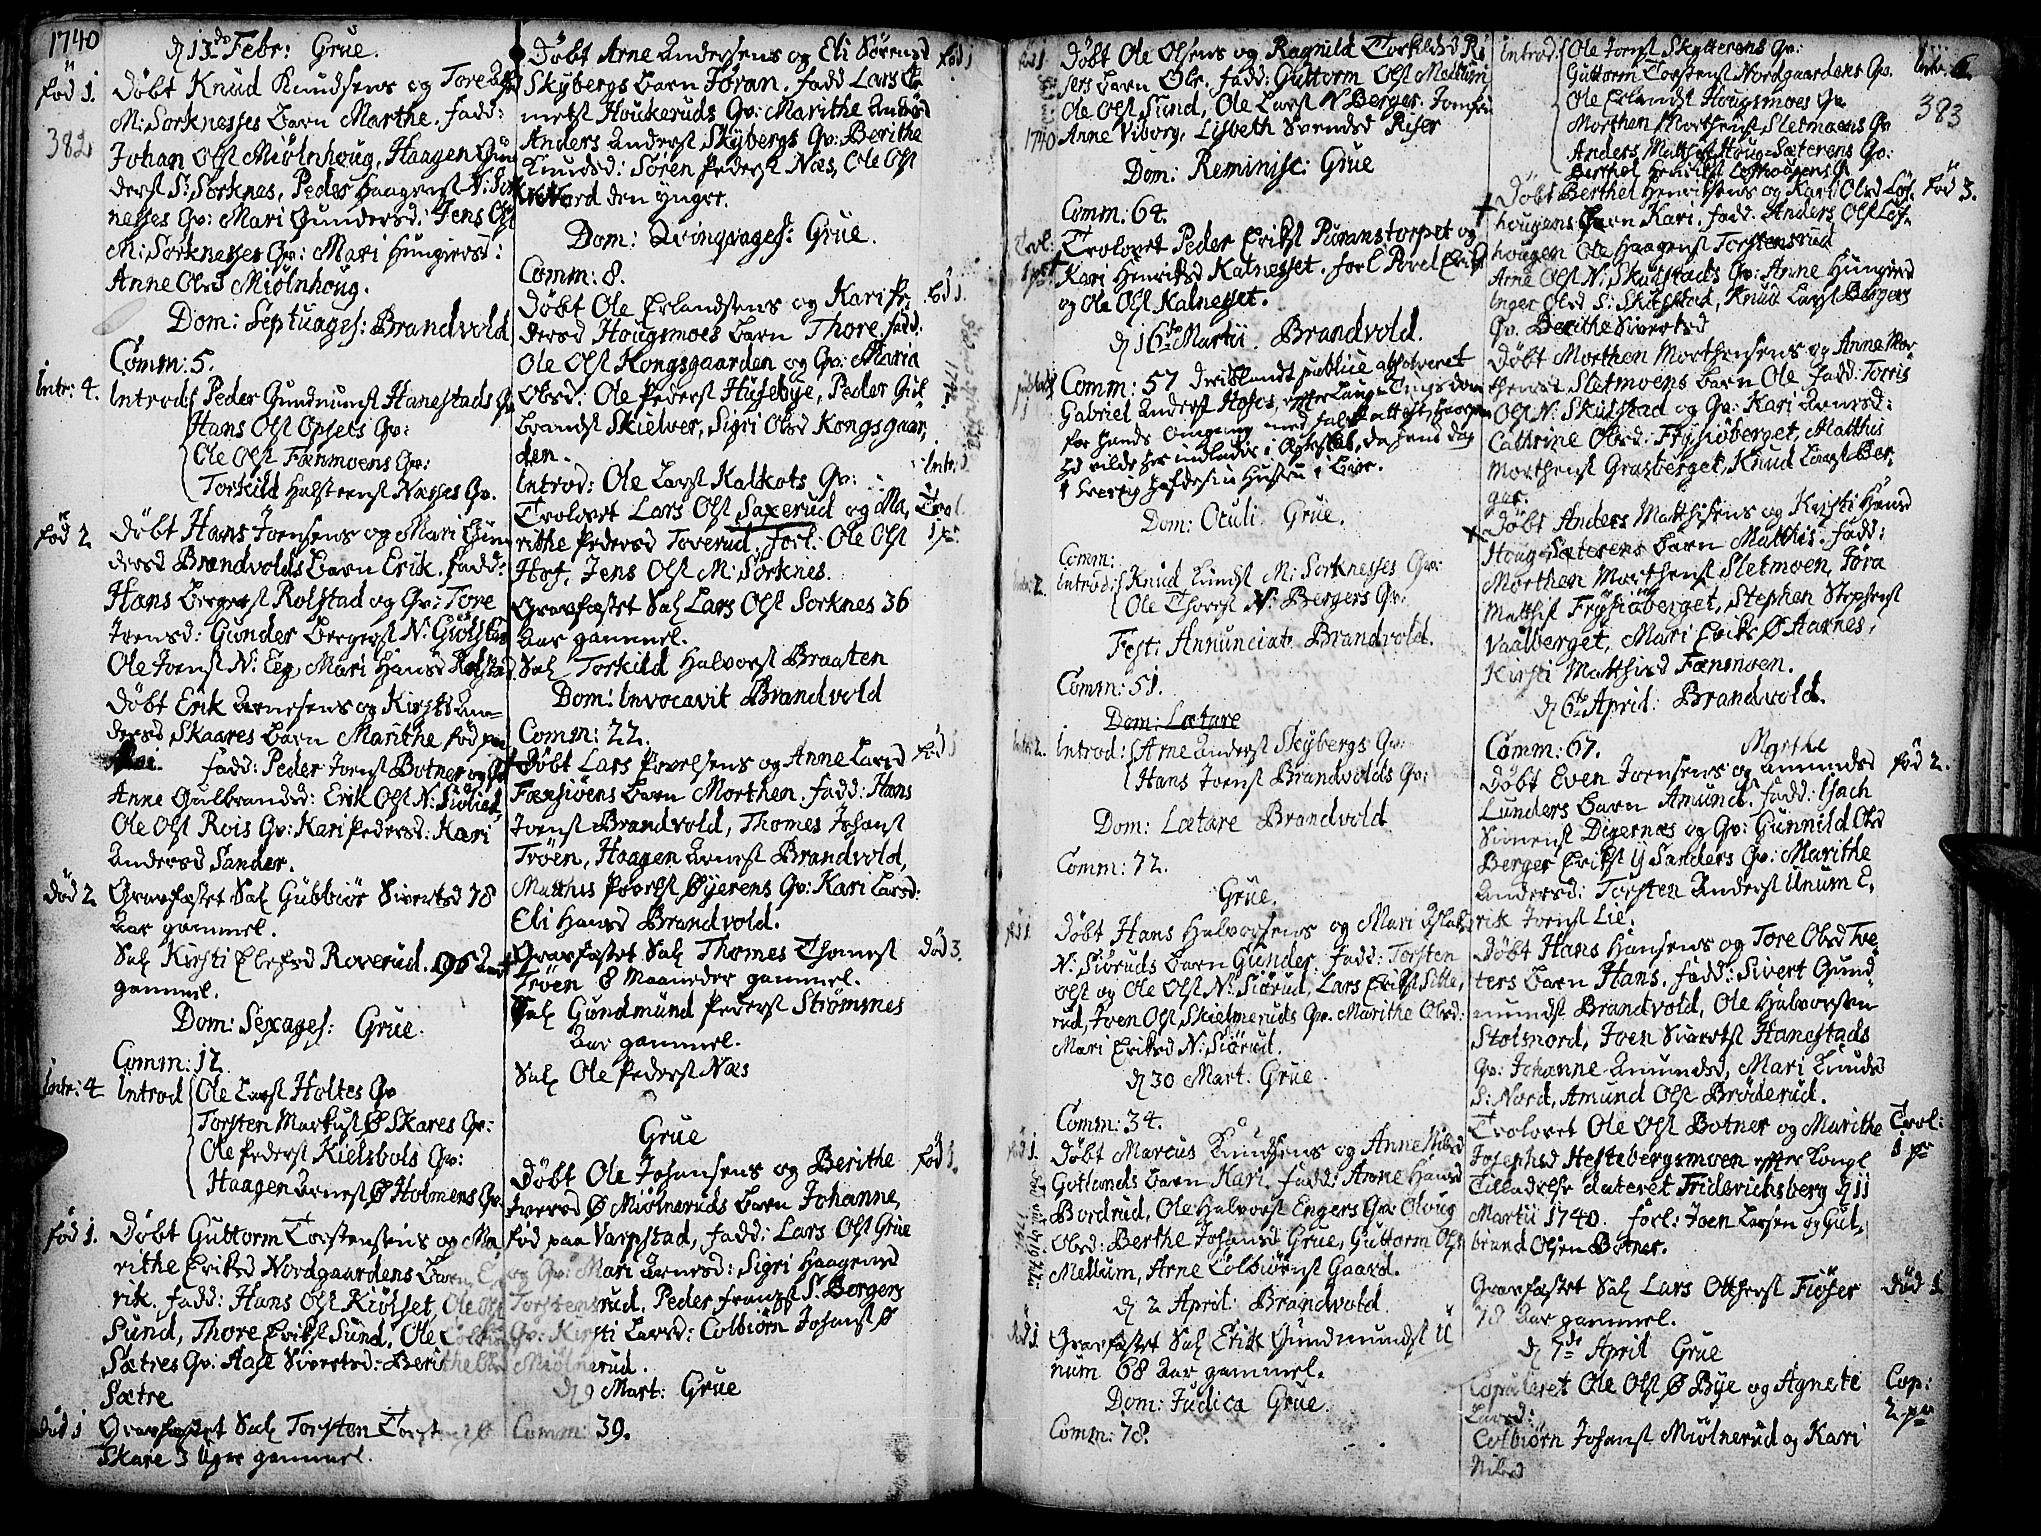 1740
d 13de Febr: Grue.
fød 1. Døbt Knud Knudsens og Tore
M: Sorknesses barn Marthe. fadd:
382
Johan Olss Miølnhoug, Haagen Gun
derss S: Sorknes, Peder Haagenss N: Sork
nesses Qv: Mari Gundersd: Jens Olss
M: Sorknesses Qv: Mari Hungiersd:
Anne Olsd Miølnhoug.
Dom: Septuages: Brandvold
Comm: 5.
Intr: 4. Introd: Peder Gundmunss Hanestads Qv
Hans Olss Opsets Qv:
Ole Olss Fænmoens Qv:
Torkild Halsteenss Næsses Qv.
fød 2 Døbt Hans Joensens og Mari Gun
dersd Brandvolds barn Erik. fadd:
Hans Bergerss Rolstad og Qv: Tore
Joensd: Gunder Bergerss N:
Ole Joenss N: Eeg, Mari Hansd Rolstad
Døbt Erik Arnesens og Kirsti An-
dersd Skaares barn Marithe fød paa
fadd: Peder Joenss Botner og Qv
Anne Gulbrandsd: Erik Olss N: Siølied,
Ole Olss Rois Qv: Kari Pedersd: Kari
Andersd Sander.
død 2 Gravfæstet Sal Gubbiør Sivertsd 78
Aar gammel.
Sal Kirsti Elefsd Roverud. 96 Aar
gammel.
Dom: Sexages: Grue.
Comm: 12.
Intr: 4 Introd Ole Larss Holtes Qv
Torsten Markuss Ø Skares Qv:
Ole Pederss Kielsbols Qv:
Haagen Arness Ø Holmens Qv.
fød 1. Døbt Guttorm Torstensens og Ma
rithe Eriksd Nordgaardens barn E
rik. fadd: Hans Olss Kiølset, Ole Olss
Sund, Thore Erikss Sund, Ole
Sætres Qv: Aase Sivertsd: Berithe Olsd
Sætre
død 1 Gravfæstet Sal Torsten Torst Ø
Skare 3 Uger gammel.
Døbt Arne Andersens og Eli Sørensd fød 1
Skybergs barn Joran. fadd Lars
metss Houkeruds Qv: Marithe Andersd
Anders Anderss Skybergs Qv: Berithe
Knudsd: Søren Pederss Næs, Ole Olss
Nord den yngre.
Dom: Qvinqvages: Grue.
Comm: 8.
Døbt Ole Erlandsens og Kari Pe fød 1.
dersd Hougsmoes barn Thore fadd:
Ole Olss Kongsgaarden og Qv: Maria
Olsd: Ole Pederss Husebye, Peder Gul
brandss Skielver, Sigri Olsd Kongsgaar
den.
Introd: Ole Larss Kalkots Qv: Intr: 1
Trolovet Lars Olss Saxerud og Ma, Trol.
rithe Pedersd Toverud, forl: Ole Olss 1 pr:
Hof, Jens Olss M: Sorknes.
Gravfæstet Sal Lars Olss Sorknes 36
Aar gammel.
Sal Torkild Halvorss Braaten
Dom: Invocavit Brandvold
Comm: 22.
Døbt Lars Povelsens og Anne Larsd fød 1
Fæxsiøens barn Morthen. fadd: Hans
Joenss Brandvold, Thomes Johanss
Trøen, Haagen Arness Brandvold,
Matthis Povelss Øyerens Qv: Kari Larsd:
Eli Hansd Brandvold.
Gravfæstet Sal Thomes Thomess død 3.
Trøen 8 Maaneder gammel.
Sal Gundmund Pederss Strømmes
Aar gammel.
Sal Ole Pederss Næs
Grue
Døbt Ole Johansens og Berithe fød 1.
Iversd Ø Miølneruds barn Johanne,
fød paa Varpstad, fadd: Lars Olss Grue
og Qv: Mari Arnesd: Sigri Haagensd
Torstensrud, Peder Franss S. Bergers
Qv: Kirsti Larsd: Colbiørn Johanss Ø
Miølnerud.
d 9 Mart: Grue
Comm: 39.
fød 1. Døbt Ole Olsens og Ragnild Torkildsd Ri
sers barn Ole. fadd: Guttorm Olss Mellum
Ole Olss Sund, Ole Larss N Berger. Jomfru
1740 Anne Viborg, Lisbeth Svendsd Riser
Dom: Reminisc: Grue
Comm: 64.
Trol: Trolovet Peder Erikss Puranstorpet og
1 pr Kari Henriksd Kalnesset. forl Povel Erikss
og Ole Olss Kalnesset.
d 16te Martii. Brandvold.
Comm: 57 publice absolveret
Gabriel Anderss Hofos, efter Laug-Tings dom
Dom: Oculi. Grue.
Comm:
Intr: 2. Introd: Knud Knudss M: Sorknesses Qv:
Ole Thorss N: Bergers Qv:
Fest: Annunciat: Brandvold.
Comm: 51.
Dom: Lætare
Intr: 2. Introd: Arne Anderss Skybergs Qv:
Hans Joenss Brandvolds Qv:
Dom: Lætare Brandvold
Comm: 72.
Grue.
fød 1 Døbt Hans Halvorsens og Mari
N: Siøruds barn Gunder. fadd: Torsten
Olss og Ole Olss N: Siørud, Lars Erikss Sitte,
rud, Joen Olss Skielneruds Qv. Marithe Olsd:
Mari Eriksd N: Siørud.
d 30 Mart: Grue.
Comm: 34.
fød 1. Døbt Marcus Knudsens og Anne Nilsd
Gotlands barn Kari. fadd: Anne Hansd
Bordrud, Ole Halvorss Engers Qv: Oloug
Olsd: Berthe Johansd Grue, Guttorm Olss
Mellum, Arne Colbiørnss Gaard.
d 2 April: Brandvold.
død 1. Gravfæstet Sal Erik Gundmundss U
num 68 Aar gammel.
Dom: Judica Grue.
Comm: 78.
Introd: Ole Joenss Skytterens Qv: Intr: 6
Guttorm Torstenss Nordgaardens Qv. 383
Ole Erlandss Hougsmoes Qv
Morthen Morthenss Sletmoens Qv
Anders Matthiss Houg-Sæterens Qv:
Berthel Henrikss Løfhougens Qv
Døbt Berthel Henriksens og Kari Olsd Løf- fød 3.
hougens barn Kari. fadd. Anders Olss Løf-
hougen Ole Haagenss Torstensrud
Arne Olss N: Skulstads Qv: Anne Hungiersd
Inger Olsd S: Skulstad, Knud Larss Bergers
Qv. Berithe Sivertsd
Døbt Morthen Morthensens og Anne Mor
thensd Sletmoens barn Ole. fadd: Torris
Olss N: Skulstad og Qv: Kari Arnesd:
Cathrine Olsd: Frysiøberget, Matthis
Morthenss Grasberget, Knud Larss Ber,
ger.
Døbt Anders Matthisens og Kirsti Hansd
Houg-Sæterens barn Matthis. fadd:
Morthen Morthenss Sletmoen, Jøra
Matthiss Frysiøberget, Stephen Stephenss
Vaalberget, Mari Eriksd Ø Aarnes,
Kirsti Matthisd Fænmoen.
d 6te April: Brandvold.
Comm: 67. Marthe
Døbt Even Joensens og Amundsd fød 2.
Lunders barn Amund. fadd: Isach
Simenss Digernæs og Qv: Gunnild Olsd
Berger Erikss Y Sanders Qv: Marithe
Andersd: Torsten Anderss Unum E,
rik Joenss Lie.
Døbt Hans Hansens og Tore Olsd Tve-
ters barn Hans. fadd: Sivert Gund-
mundss Brandvold, Ole Halvorsen
Stolsnord, Joen Sivertss Hanestads
Qv: Johanne Amundsd, Mari Knudsd
S: Nord, Amund Olss Brøderud.
Trolovet Ole Olss Botner og Marithe Trol:
Josephsd Heftebergsmoen efter Kongl 1 pr
Tilladelse dateret Friderichsberg d 11
Martii 1740. forl: Joen Larsen og Gul,
brand Olsen Botner.
Gravfæstet Sal Lars Ottherss Fiøser død 1
78 Aar gammel.
d 7de April Grue
Copuleret Ole Olss Ø Bye og Agnete Cop:
Larsd: 2 pr
Colbiørn Johanss Miølnerud og Kari
Nilsd